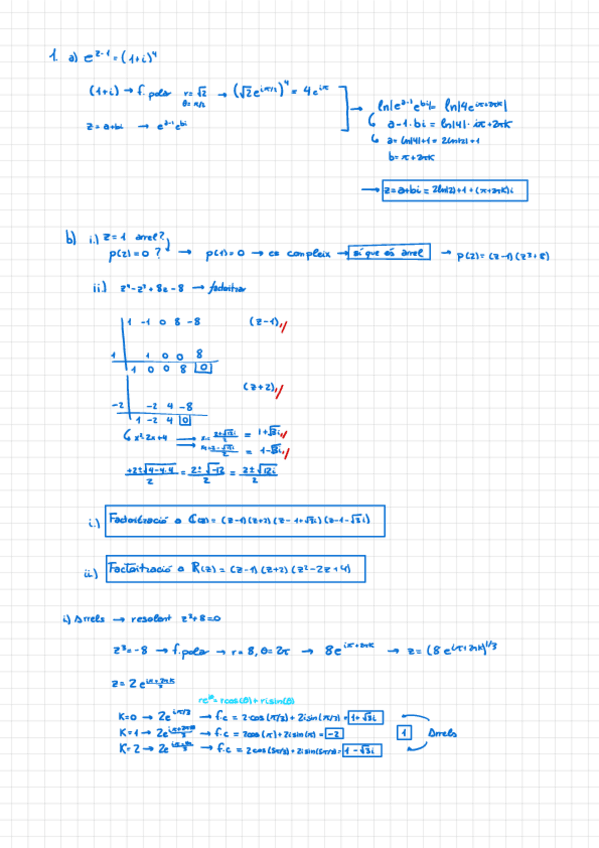 1. a) e^(z-1) = (1+i)^4
(1+i) → f. polar r=√2 θ=π/2 → (√2 e^(iπ/2))^4 = 4e^(iπ)
z = a+bi → e^(a-1) e^(bi)
→ ln|e^(a-1) e^(bi)| = ln|4e^(iπ+2πK)|
a-1 · bi = ln|4| · iπ+2πK
a = ln|4|+1 = 2ln|2|+1
b = π+2πK
→ z=a+bi = 2ln(2)+1+(π+2πK)i
b) i.) z=1 arrel?
p(z)=0? → p(1)=0 → es compleix → sí que és arrel → p(z)=(z-1)(z³+8)
ii.) z⁴-z³+8z-8 → factoritzar
1 -1 0 8 -8 (z-1)
1 1 0 0 8
1 0 0 8 0
(z+2)
-2 -2 4 -8
1 -2 4 0
x²-2x+4 = 1+√3i
= 1-√3i
+2±√4-4·4 / 2 = 2±√-12 / 2 = 2±√12i / 2
i.) Factorització a ℂ(z) = (z-1)(z+2)(z-1+√3i)(z-1-√3i)
ii.) Factorització a ℝ(z) = (z-1)(z+2)(z²-2z+4)
i) Arrels → resolent z³+8=0
z³=-8 → f. polar → r=8, θ=2π → 8e^(iπ+2πK) → z=(8e^(iπ+2πK))^(1/3)
z=2e^((iπ+2πK)/3)
re^(iθ)=rcos(θ)+risin(θ)
K=0 → 2e^(iπ/3) → f.c = 2·cos(π/3)+2isin(π/3) = 1+√3i
K=1 → 2e^((iπ+2π)/3) → f.c = 2cos(π)+2isin(π) = -2 1 Arrels
K=2 → → f.c = 2cos(5π/3)+2isin(5π/3) = 1-√3i